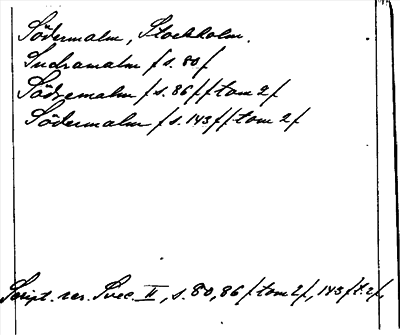 Södermalm, Stockholm.
Sudramalm /s. 80/
Södremalm /s. 86/ /tom 2/
Södermalm /s. 143/ /tom 2/
Script. rer. Svec. II, s. 80, 86 /tom 2/, 143 /t. 2/,